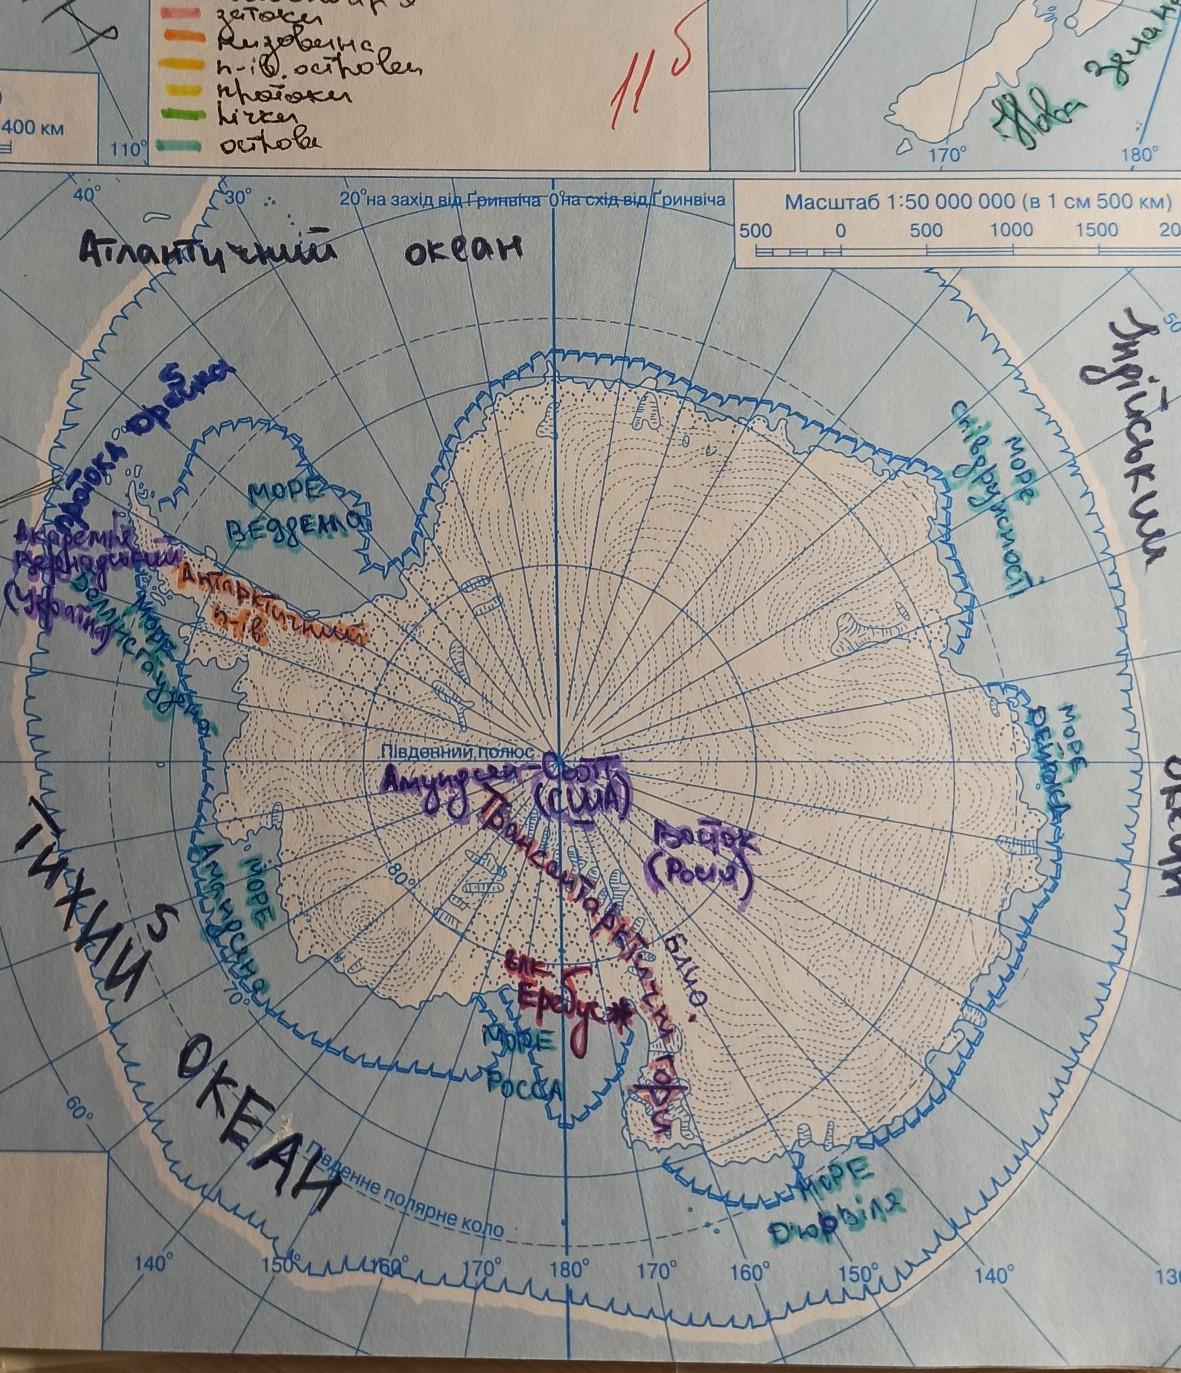 затоки
низовина
п-ів. острови
протоки
річки
острова
11 5
400 км
110°
Нова Зелан
170°
180°
40°
30°
20° на захід від Ґринвіча 0° на схід від Ґринвіча
Масштаб 1:50 000 000 (в 1 см 500 км)
500 0 500 1000 1500 20
Атлантичний океан
50
Індійський
океан
протока Дрейка
5
МОРЕ
ВЕДДЕЛЛА
МОРЕ
співдружності
Академік
Вернадський
(Україна)
Антарктичний
п-ів
МОРЕ
Беллінсгаузена
МОРЕ
ДЕЙВІСА
Південний полюс
Амундсен-Скотт
(США)
Восток
(Росія)
Трансантарктичні гори
80°
70°
МОРЕ
Амундсена
влк.
Еребус
МОРЕ
РОССА
ТИХИЙ
5
ОКЕАН
60°
Південне полярне коло
МОРЕ
Дюрвіля
140°
150°
160°
170°
180°
170°
160°
150°
140°
13